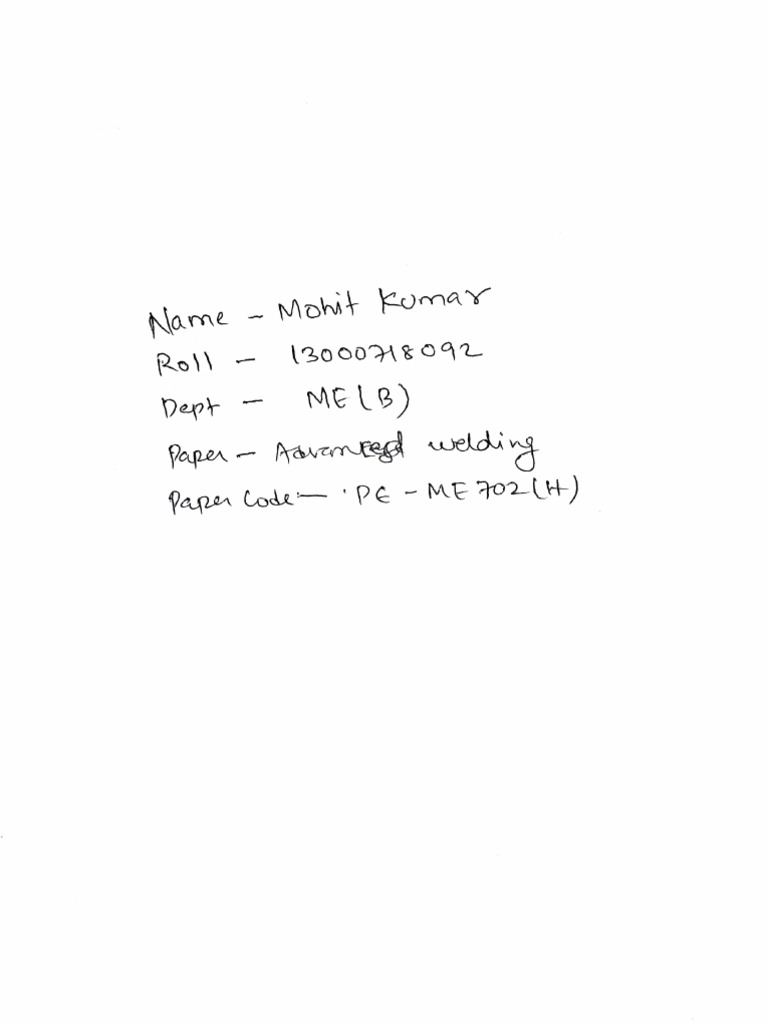 Name - Mohit Kumar
Roll - 13000718092
Dept - ME(B)
Paper - Advanced welding
Paper Code:- PE - ME 702(H)